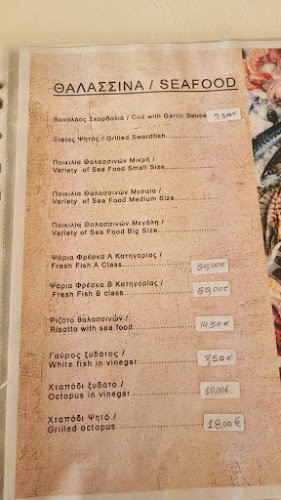 ΘΑΛΑΣΣΙΝΑ / SEAFOOD
Βακαλάος Σκορδαλιά / Cod with Garlic Sauce 9,50€
Ξιφίας Ψητός / Grilled Swordfish
Ποικιλία Θαλασσινών Μικρή /
Variety of Sea Food Small Size
Ποικιλία Θαλασσινών Μεσαία /
Variety of Sea Food Medium Size
Ποικιλία Θαλασσινών Μεγάλη /
Variety of Sea Food Big Size
Ψάρια Φρέσκα Α Κατηγορίας /
Fresh Fish A Class 60,00€
Ψάρια Φρέσκα Β Κατηγορίας /
Fresh Fish B class 55,00€
Ριζότο θαλασσινών /
Risotto with sea food 14,50€
Γαύρος ξυδάτος /
White fish in vinegar 7,50€
Χταπόδι ξυδάτο /
Octopus in vinegar 10,00€
Χταπόδι Ψητό /
Grilled octopus 18,00€